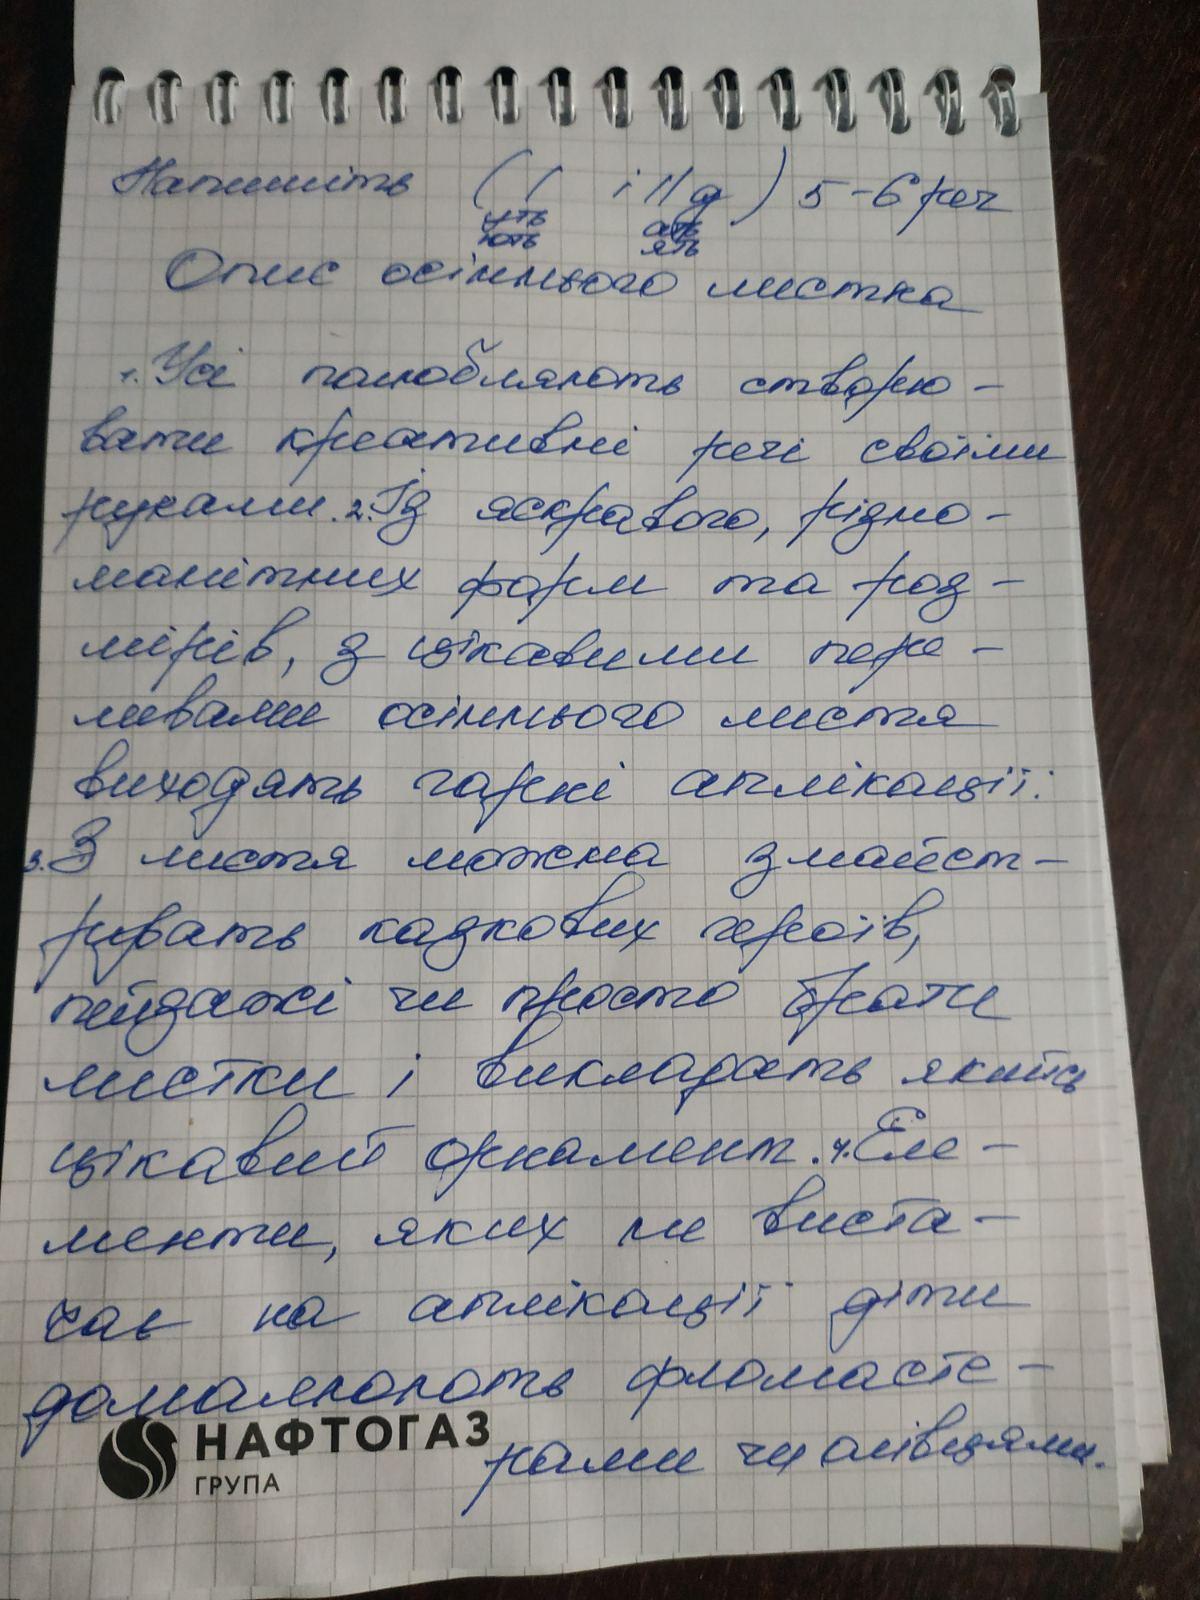 Напишіть (І і ІІ д) 5-6 реч
уть ать
ють ять
Опис осіннього листка
1. Усі полюбляють створю-
вати креативні речі своїми
руками. 2. Із яскравого, різно-
манітних форм та роз-
мірів, з цікавими пере-
ливами осіннього листя
виходять гарні аплікації.
3. З листя можна змайст-
рувать казкових героїв,
пейзажі чи просто брати
листки і викладать якийсь
цікавий орнамент. 4. Еле-
менти, яких не виста-
чає на аплікації діти
домальовують фломасте-
рами чи олівцями.
НАФТОГАЗ
ГРУПА